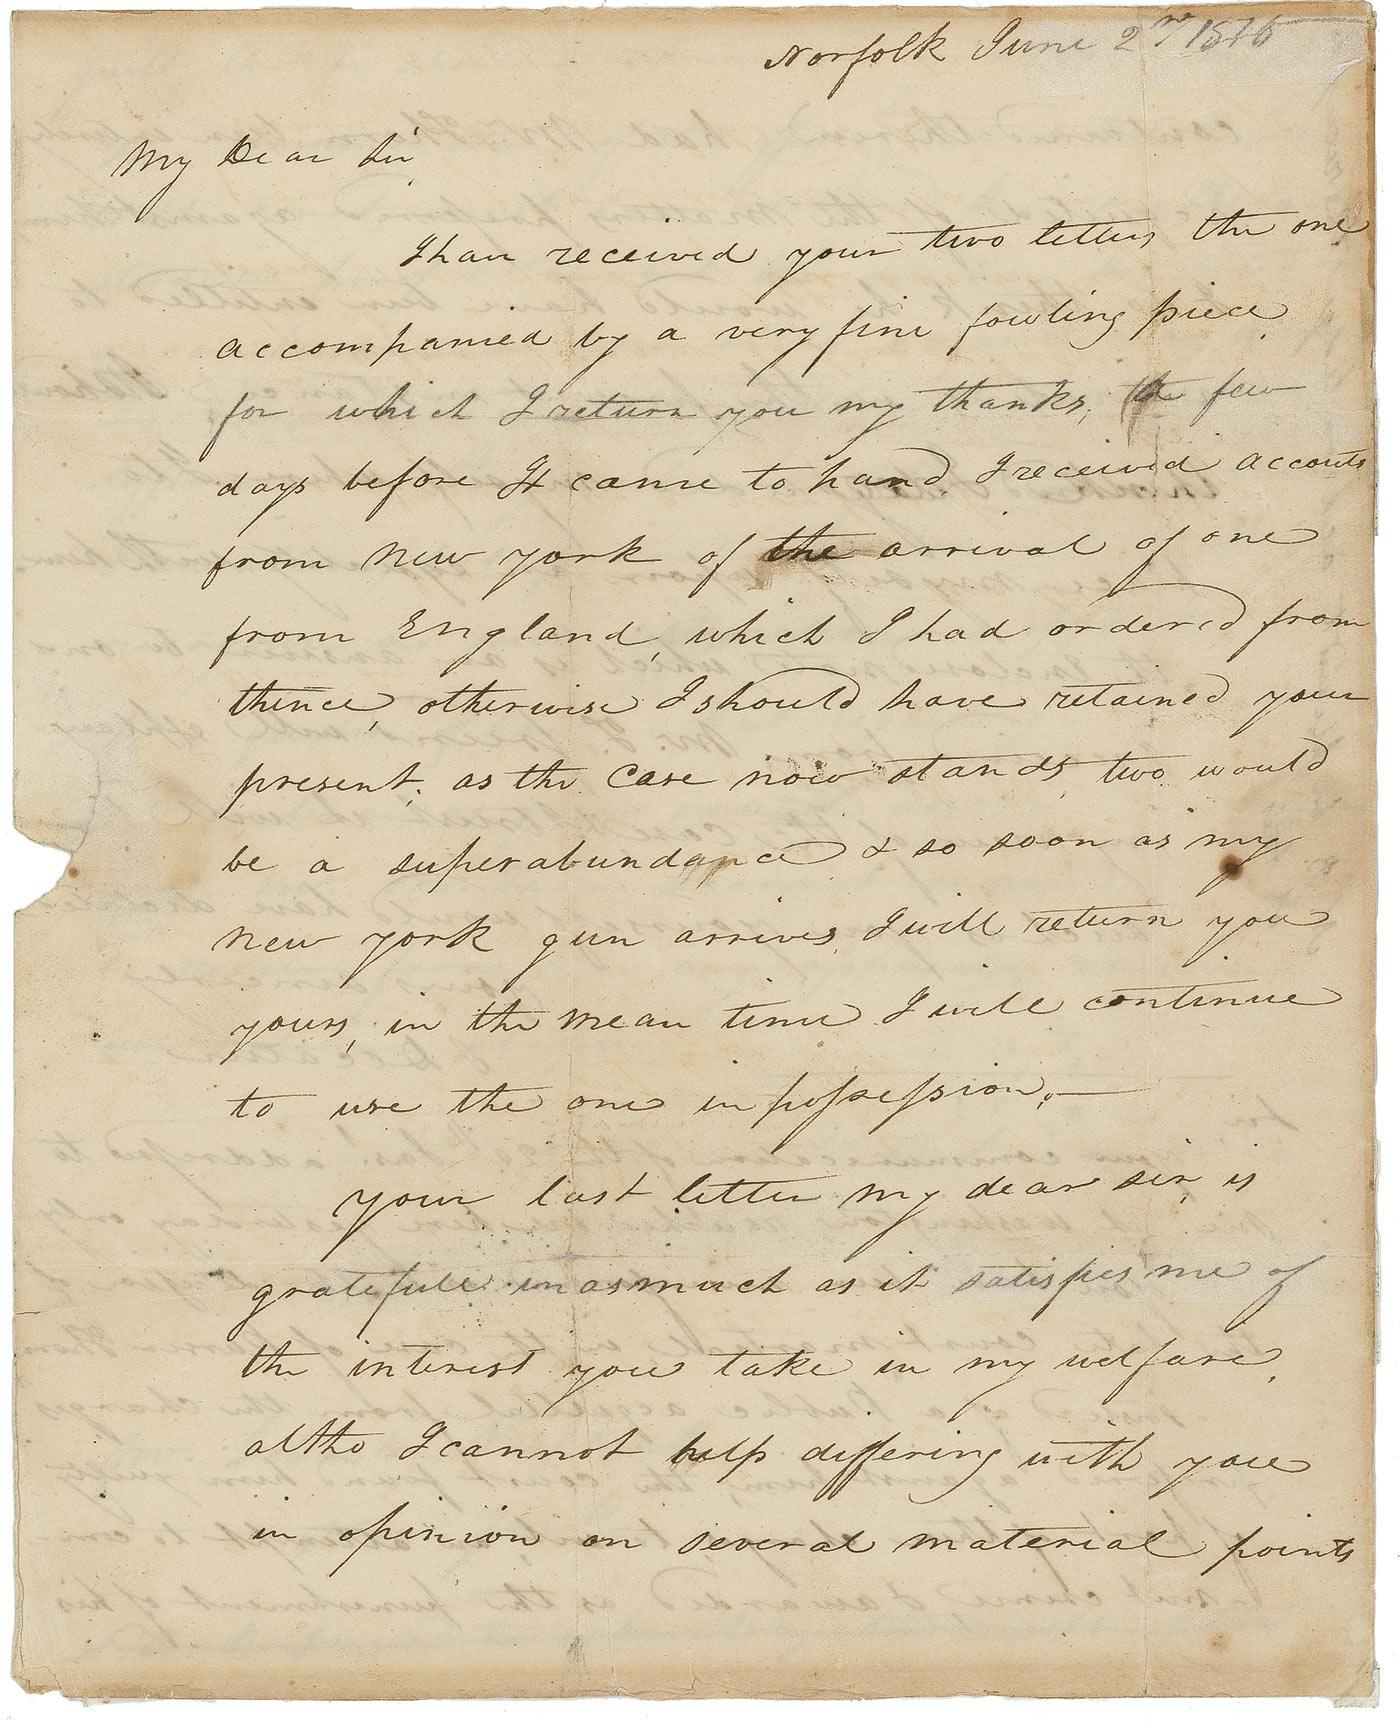 Norfolk June 2nd
My Dear Sir,
I have received your two letters, the one
accompanied by a very fine fowling piece,
for which I return you my thanks, a few
days before It came to hand, I received accouts
from New York of the arrival of one
from England, which I had ordered from
thence, otherwise I should have retained your
present; as the case now stands, two would
be a superabundance & so soon as my
New York gun arrives, I will return you
yours, in the mean time I will continue
to use the one in possession. —
Your last letter my dear sir, is
gratefull inasmuch as it satisfies me of
the interest you take in my welfare,
altho I cannot help differing with you
in opinion on several material points